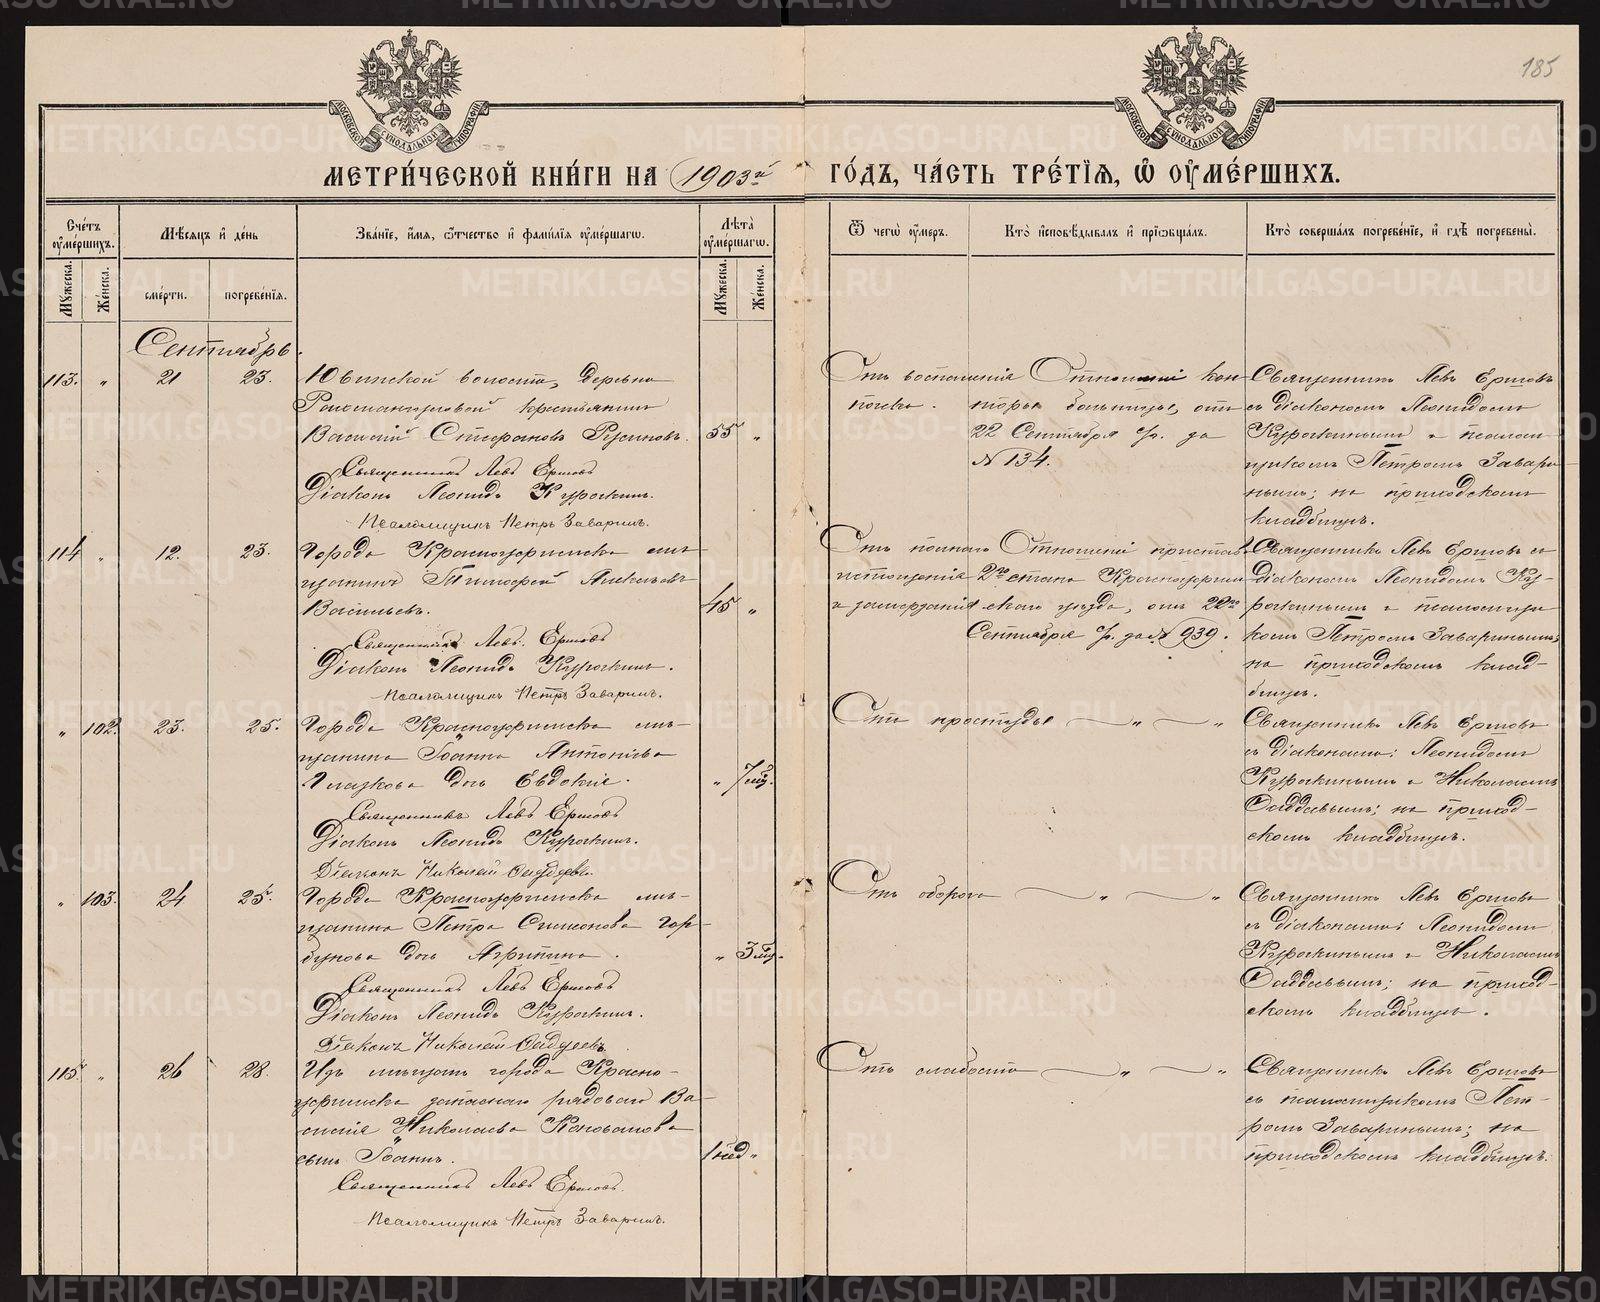 185
МОСКОВСКОЙ СѴНОДАЛЬНОЙ ТИПОГРАФІИ
МОСКОВСКОЙ СѴНОДАЛЬНОЙ ТИПОГРАФІИ
МЕТРИ́ЧЕСКОЙ КНИ́ГИ НА 1903й ГО́ДЪ, ЧА́СТЬ ТРЕ́ТІѦ, Ѡ҆ ОУ҆МЕ́РШИХЪ.
Сче́тъ оу҆ме́ршихъ.
Мꙋ́жеска.
Же́нска.
Мѣ́сѧцъ и҆ де́нь
сме́рти.
погребе́нїѧ.
Зва́нїе, и҆́мѧ, ѻ҆́тчество и҆ фами́лїѧ оу҆ме́ршагѡ.
Лѣ́та оу҆ме́ршагѡ.
Мꙋ́жеска.
Же́нска.
Ѿ чегѡ̀ оу҆́меръ.
Кто̀ и҆сповѣ́дывалъ и҆ прїѡбща́лъ.
Кто̀ соверша́лъ погребе́нїе, и҆ гдѣ̀ погребены̀.
Сентябрь.
113. „ 21 23. Ювинской волости, деревни
крестьянинъ
Василій Стефановъ Русиновъ. 55 „
Священникъ Левъ Ершовъ
Діаконъ Леонидъ Курочкинъ.
Псаломщикъ Петръ Заваринъ.
Отъ воспаленія
почекъ.
Отношеніе кон-
торы больницы, отъ
22 Сентября с/г. за
№ 134.
Священникъ Левъ Ершовъ
съ діакономъ Леонидомъ
Курочкинымъ и псалом-
щикомъ Петромъ Завари-
нымъ; на приходскомъ
кладбищѣ.
114 „ 12. 23. Города Красноуфимска мѣ-
щанинъ Тимофей Алексѣевъ
Васильевъ. 45 „
Священникъ Левъ Ершовъ
Діаконъ Леонидъ Курочкинъ.
Псаломщикъ Петръ Заваринъ.
Отъ полнаго
истощенія
и замерзанія
Отношеніе пристава
2го стана Красноуфим-
скаго уѣзда, отъ 22го
Сентября с/г. за № 939.
Священникъ Левъ Ершовъ съ
діакономъ Леонидомъ Ку-
рочкинымъ и псаломщи-
комъ Петромъ Заваринымъ;
на приходскомъ клад-
бищѣ.
„ 102. 23. 25. Города Красноуфимска мѣ-
щанина Іоанна Антоніева
Глазкова дочь Евдокія. „ 7 мѣ.
Священникъ Левъ Ершовъ
Діаконъ Леонидъ Курочкинъ.
Діаконъ Николай Фаддеевъ.
Отъ простуды „ „
Священникъ Левъ Ершовъ
съ діаконами: Леонидомъ
Курочкинымъ и Николаемъ
Фаддеевымъ; на приход-
скомъ кладбищѣ.
„ 103. 24 25. Города Красноуфимска мѣ-
щанина Петра Симеонова Гор-
бунова дочь Агрипина. „ 3 мѣ.
Священникъ Левъ Ершовъ
Діаконъ Леонидъ Курочкинъ.
Діаконъ Николай Фаддеевъ
Отъ „ „
Священникъ Левъ Ершовъ
съ діаконами: Леонидомъ
Курочкинымъ и Николаемъ
Фаддеевымъ; на приход-
скомъ кладбищѣ.
115. „ 26 28. Изъ мѣщанъ города Красно-
уфимска запаснаго рядоваго Ва-
силія Николаева Коновалова
сынъ Іоаннъ. 1 нед „
Священникъ Левъ Ершовъ.
Псаломщикъ Петръ Заваринъ.
Отъ слабости „ „
Священникъ Левъ Ершовъ
съ псаломщикомъ Пет-
ромъ Заваринымъ; на
приходскомъ кладбищѣ.
METRIKI.GASO-URAL.RU